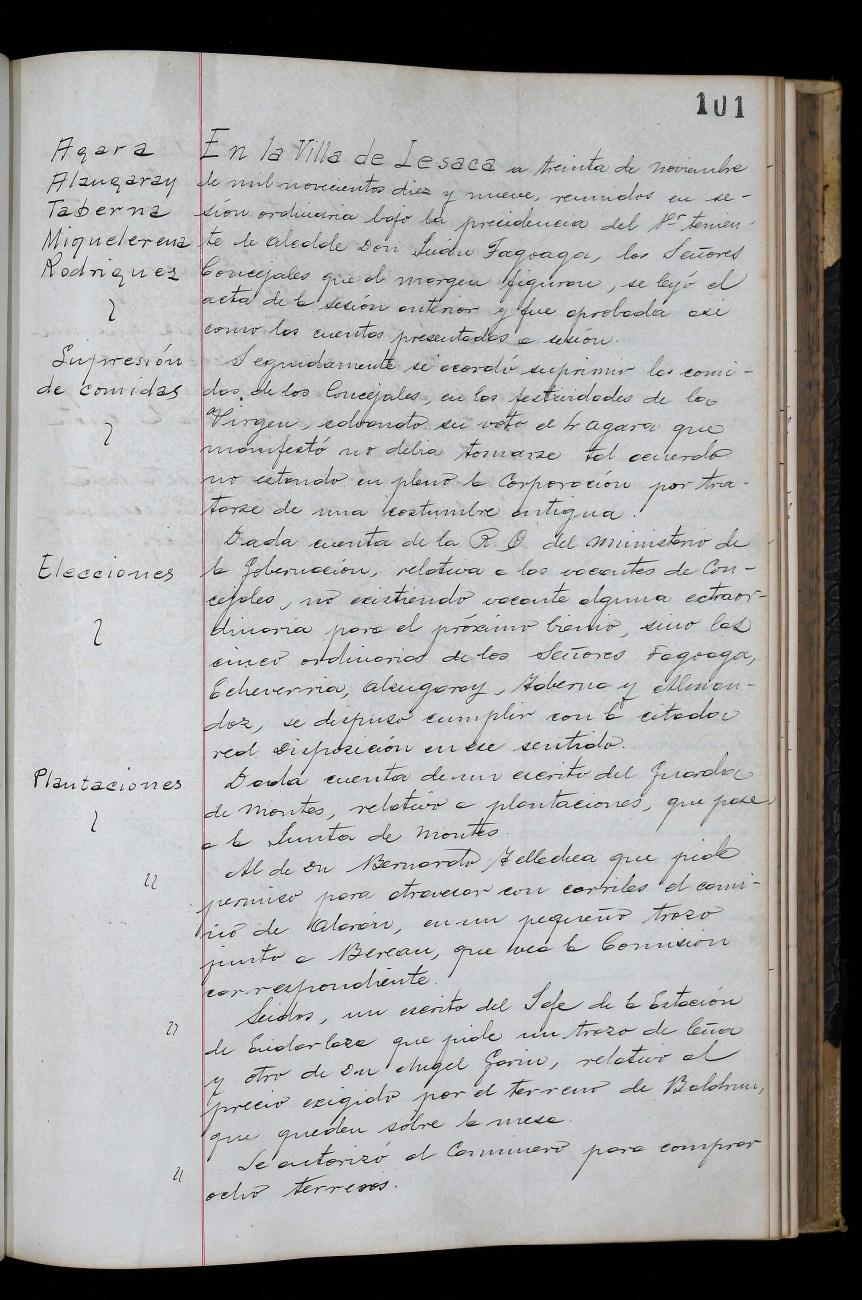 101
Agara
Alzugaray
Taberna
Miquelerena
Rodriguez
En la Villa de Lesaca a treinta de noviembre
de mil novecientos diez y nueve, reunidos en se-
sión ordinaria bajo la presidencia del 1er tenien-
te de alcalde Don Juan Fagoaga, los Señores
Concejales que al margen figuran, se leyó el
acta de la sesión anterior y fue aprobada asi
como las cuentas presentadas a sesión.
Supresión
de comidas
Seguidamente se acordó suprimir las comi-
das de los Concejales, en las festividades de la
Virgen, salvando su voto el Sr Agara que
manifestó no debia tomarse tal acuerdo
no estando en pleno la Corporación por tra-
tarse de una costumbre antigua.
Elecciones
Dada cuenta de la R.O. del Ministerio de
la Gobernación, relativa a las vacantes de Con-
cejales, no existiendo vacante alguna extraor-
dinaria para el próximo bienio, sino las
cinco ordinarias de los Señores Fagoaga,
Echeverria, Alzugaray, Taberna y Alman-
doz, se dispuso cumplir con la citada
real disposición en ese sentido.
Plantaciones
Dada cuenta de un escrito del Guarda
de montes, relativo a plantaciones, que pase
a la Junta de Montes.
"
Al de Dn Bernardo Tellechea que pide
permiso para atravesar con carriles el cami-
no de Alarán, en un pequeño trozo
junto a Bereau, que vea la Comisión
correspondiente.
"
Leidos, un escrito del Jefe de la Estación
de Endarlaza que pide un trozo de leña
y otro de Dn Angel Garin, relativo al
precio exigido por el terreno de Baldrun,
que queden sobre la mesa.
"
Se autorizó al Caminero para comprar
ocho terreros.